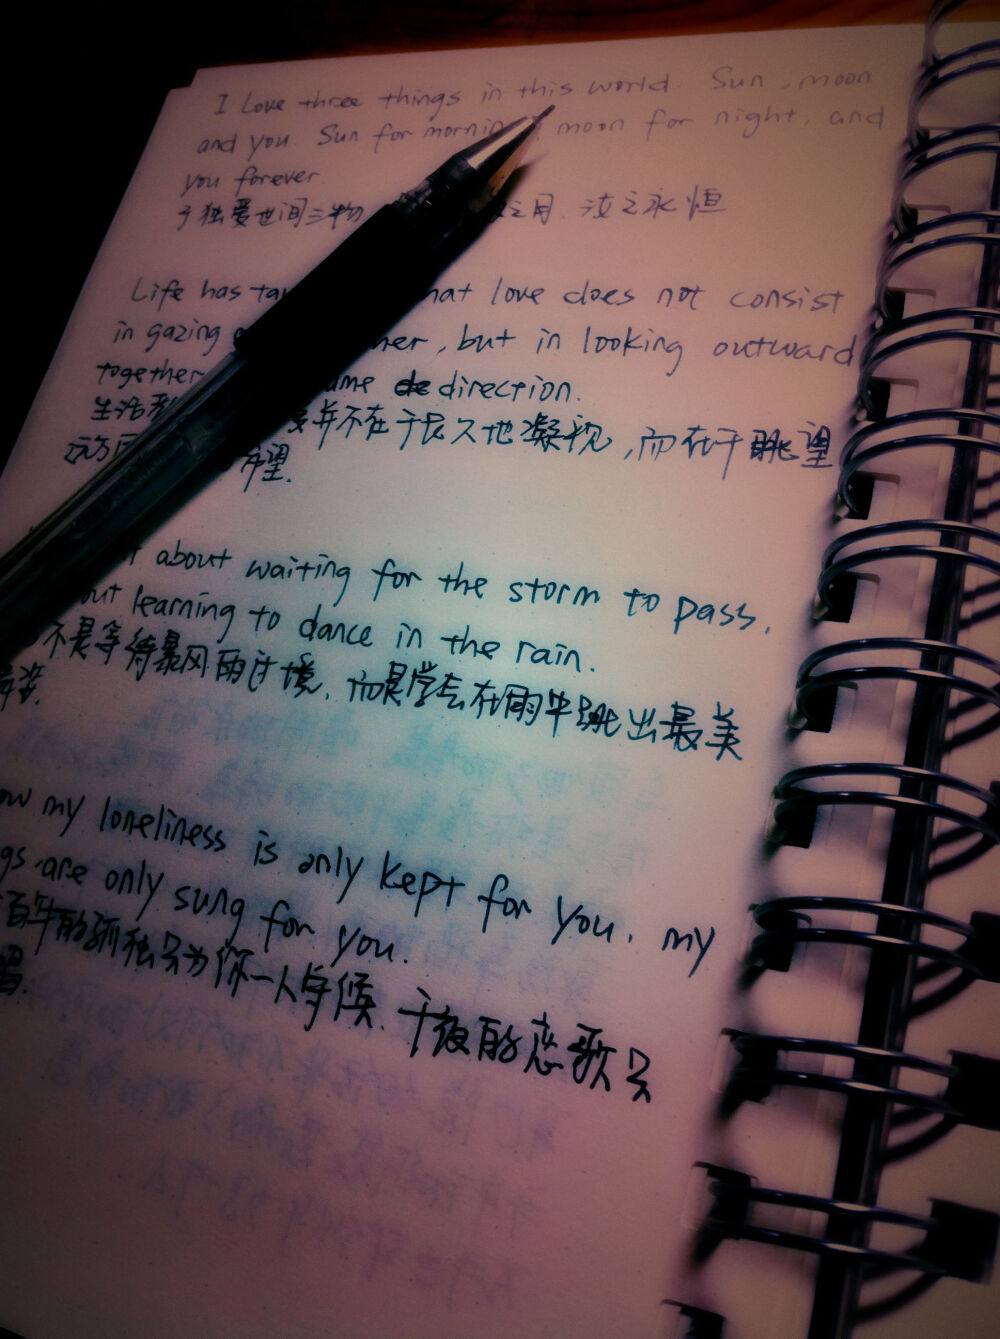 I Love three things in this world. Sun, moon
and you. Sun for morning, moon for night, and
you forever.
予独爱世间三物 之月.汝之永恒
Life has that love does not consist
in gazing , but in looking outward
together direction.
生活 爱并不在于长久地凝视,而在于眺望
远方 希望.
about waiting for the storm to pass,
learning to dance in the rain.
不是等待暴风雨过境,而是学会在雨中跳出最美
舞姿.
my loneliness is only kept for you, my
are only sung for you.
百年的孤独只为你一人守候,千夜的恋歌只
唱.